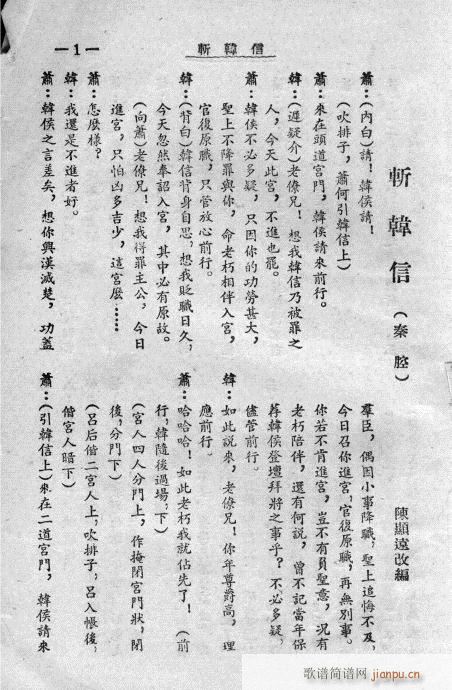 斬韓信
—1—
斬韓信（秦腔）
陳顯遠改編
蕭：（內白）請！韓侯請！
（吹排子，蕭何引韓信上）
蕭：來在頭道宮門，韓侯請來前行。
韓：（遲疑介）老僚兄！想我韓信乃被罪之
人，今天此宮，不進也罷。
蕭：韓侯不必多疑，只因你的功勞甚大，
聖上不降罪與你，命老朽相伴入宮，
官復原職，只管放心前行。
韓：（背白）韓信背身自思，想我貶職日久，
今天忽然奉詔入宮，其中必有原故。
（向蕭）老僚兄！想我得罪主公，今日
進宮，只怕凶多吉少，這宮麽……
蕭：怎麼樣？
韓：我還是不進者好。
蕭：韓侯之言差矣，想你興漢滅楚，功蓋
羣臣，偶因小事降職，聖上追悔不及，
今日召你進宮，官復原職，再無別事。
你若不肯進宮，豈不有負聖意，況有
老朽陪伴，還有何說，曾不記當年保
荐韓侯登壇拜將之事乎？不必多疑，
儘管前行。
韓：如此說來，老僚兄！你年尊爵高，理
應前行。
蕭：哈哈哈！如此老朽我就佔先了！（前
行，韓隨後過場，下）
（宮人四人分門上，作掩閉宮門狀，閉
後，分門下）
（呂后偕二宮人上，吹排子，呂入帳後，
偕宮人暗下）
蕭：（引韓信上）來在二道宮門，韓侯請來
歌谱简谱网
jianpu.cn